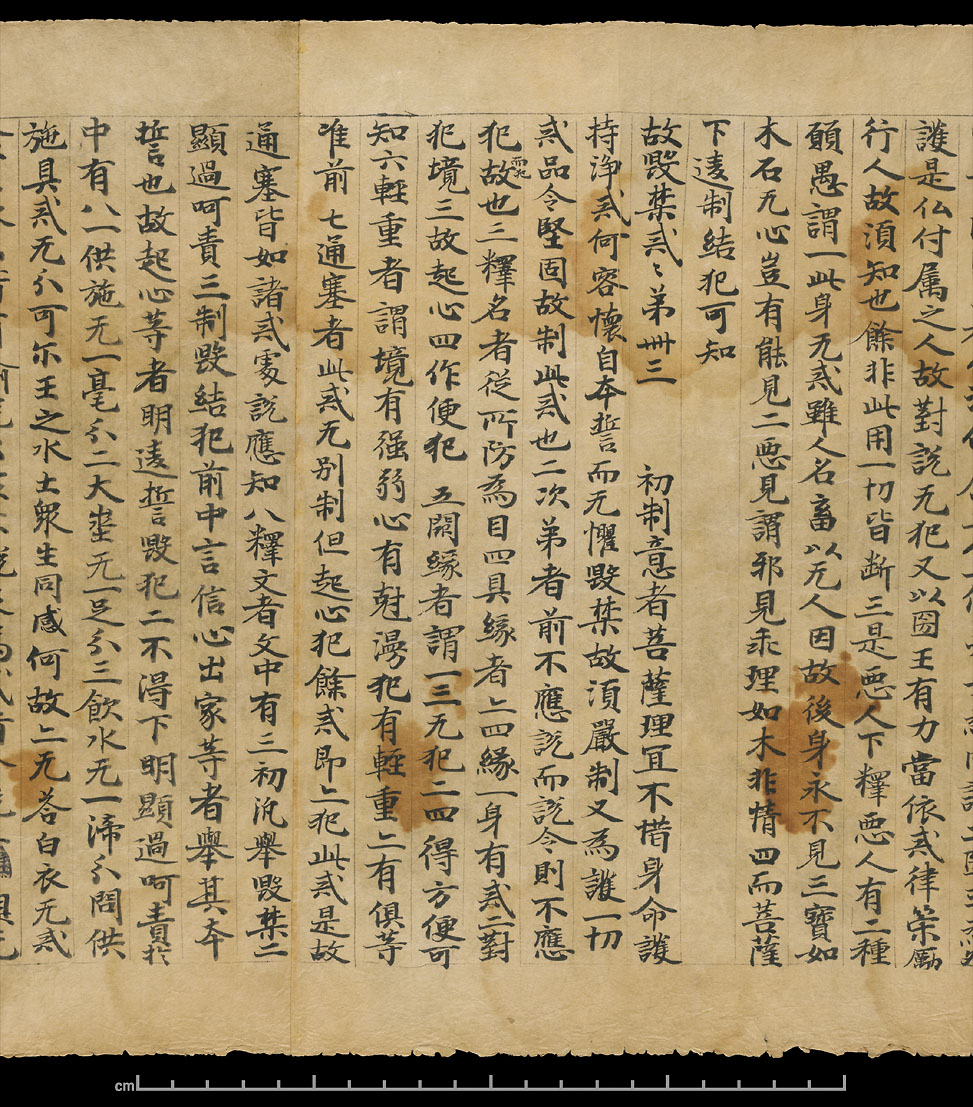 護是仏付属之人故對説无犯又以囶王有力當依戒律策勵
行人故湏知也餘非此用一切皆断三是悪人下釋悪人有二種
頑愚謂一此身无戒雖人名畜以无人因故後身永不見三寶如
木石无心豈有能見二悪見謂邪見乖理如木非情四而菩薩
下違制結犯可知
故毀禁戒〻弟卌三 初制意者菩薩理冝不惜身命護
持浄戒何容懐自本誓而无懼毀禁故湏嚴制又為護一切
戒品令堅固故制此戒也二次弟者前不應説而説令則不應
犯故犯也三釋名者從所防為目四具緣者亠四緣一身有戒二對
犯境三故起心四作便犯 五闕緣者謂一三无犯二四得方便可
知六軽重者謂境有强弱心有尅漫犯有軽重亠有俱等
准前 七通塞者此戒无别制但起心犯餘戒即亠犯此戒是故
通塞皆如諸戒處説應知八釋文者文中有三初汎舉毀禁二
顯過呵責三制毀結犯前中言信心出家等者舉其本
誓也故起心等者明違誓毀犯二不得下明顯過呵責扵
中有八一供施无一毫分二大㘴无一足分三飲水无一渧分四闕供
施具戒无分可尓王之水土衆生同感何故亠无荅白衣无戒